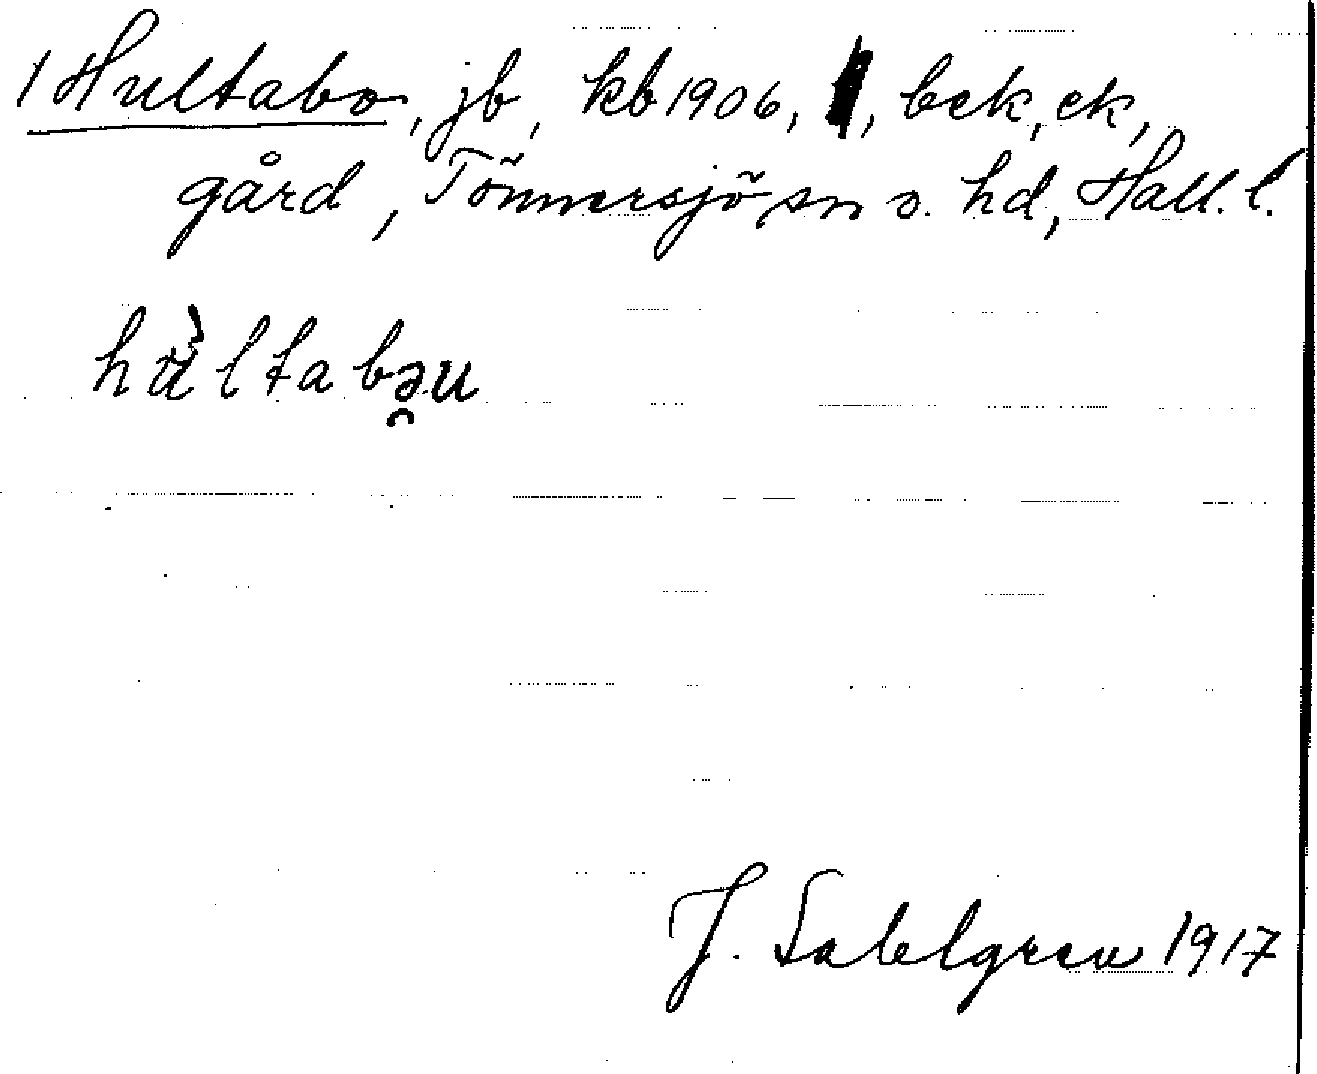 1 Hultabo, jb, kb 1906, , bek, ek,
gård, Tönnersjö sn o. hd, Hall. l.
hùltabə̯u
J. Sahlgren 1917